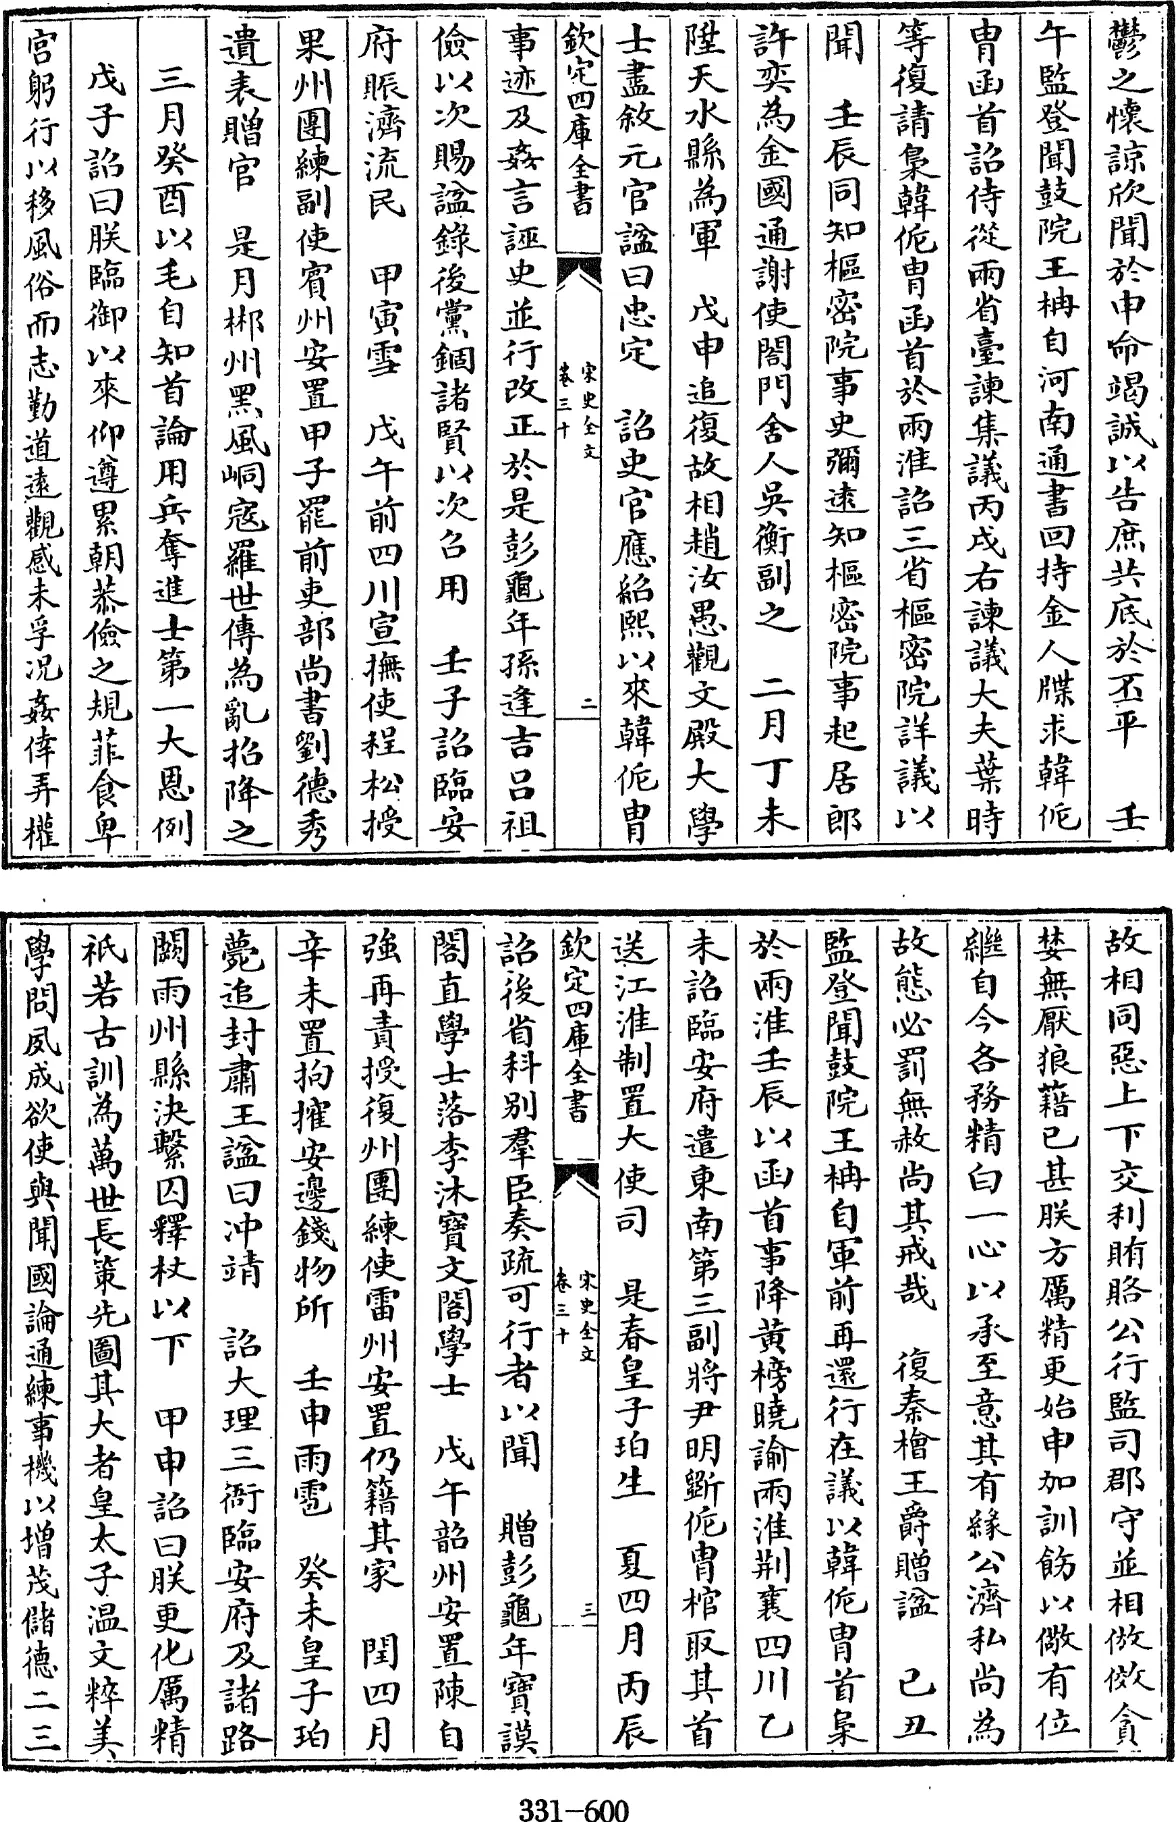 鬱之懷諒欣聞於申命竭誠以告庶共底於丕平　壬
午監登聞鼓院王柟自河南通書回持金人牒求韓侂
胄函首詔侍從兩省臺諫集議丙戌右諫議大夫葉時
等復請梟韓侂胄函首於兩淮詔三省樞密院詳議以
聞　壬辰同知樞密院事史彌逺知樞密院事起居郎
許奕為金國通謝使閤門舍人吳衡副之　二月丁未
陞天水縣為軍　戊申追復故相趙汝愚觀文殿大學
士盡敘元官諡曰忠定　詔史官應紹熙以來韓侂胄
欽定四庫全書
宋史全文
卷三十
二
事迹及姦言誣史並行改正於是彭龜年孫逢吉呂祖
儉以次賜諡錄後黨錮諸賢以次召用　壬子詔臨安
府賑濟流民　甲寅雪　戊午前四川宣撫使程松授
果州團練副使賓州安置甲子罷前吏部尚書劉德秀
遺表贈官　是月郴州黑風峒寇羅世傳為亂招降之
三月癸酉以毛自知首論用兵奪進士第一大恩例
戊子詔曰朕臨御以來仰遵累朝恭儉之規菲食卑
宮躬行以移風俗而志勤道遠觀感未孚况姦倖弄權
故相同惡上下交利賄賂公行監司郡守並相倣傚貪
婪無厭狼藉已甚朕方厲精更始申加訓飭以儆有位
繼自今各務精白一心以承至意其有緣公濟私尚為
故態必罰無赦尚其戒哉　復秦檜王爵贈諡　己丑
監登聞鼓院王柟自軍前再還行在議以韓侂胄首梟
於兩淮壬辰以函首事降黃榜曉諭兩淮荆襄四川乙
未詔臨安府遣東南第三副將尹明斵侂胄棺取其首
送江淮制置大使司　是春皇子珀生　夏四月丙辰
欽定四庫全書
宋史全文
卷三十
三
詔後省科别羣臣奏疏可行者以聞　贈彭龜年寶謨
閣直學士落李沐寶文閣學士　戊午韶州安置陳自
強再責授復州團練使雷州安置仍籍其家　閏四月
辛未置拘搉安邊錢物所　壬申雨雹　癸未皇子珀
薨追封肅王諡曰冲靖　詔大理三衙臨安府及諸路
闕雨州縣決繫囚釋杖以下　甲申詔曰朕更化厲精
祇若古訓為萬世長策先圖其大者皇太子温文粹美
學問夙成欲使與聞國論通練事機以增茂儲德二三
331-600